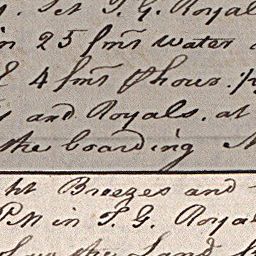 Set T. G. Royal
in 25 fms water
4 fms P hour.
and Royals. at
the boarding
ht Breezes and
PM in T. G. Roya
the Land